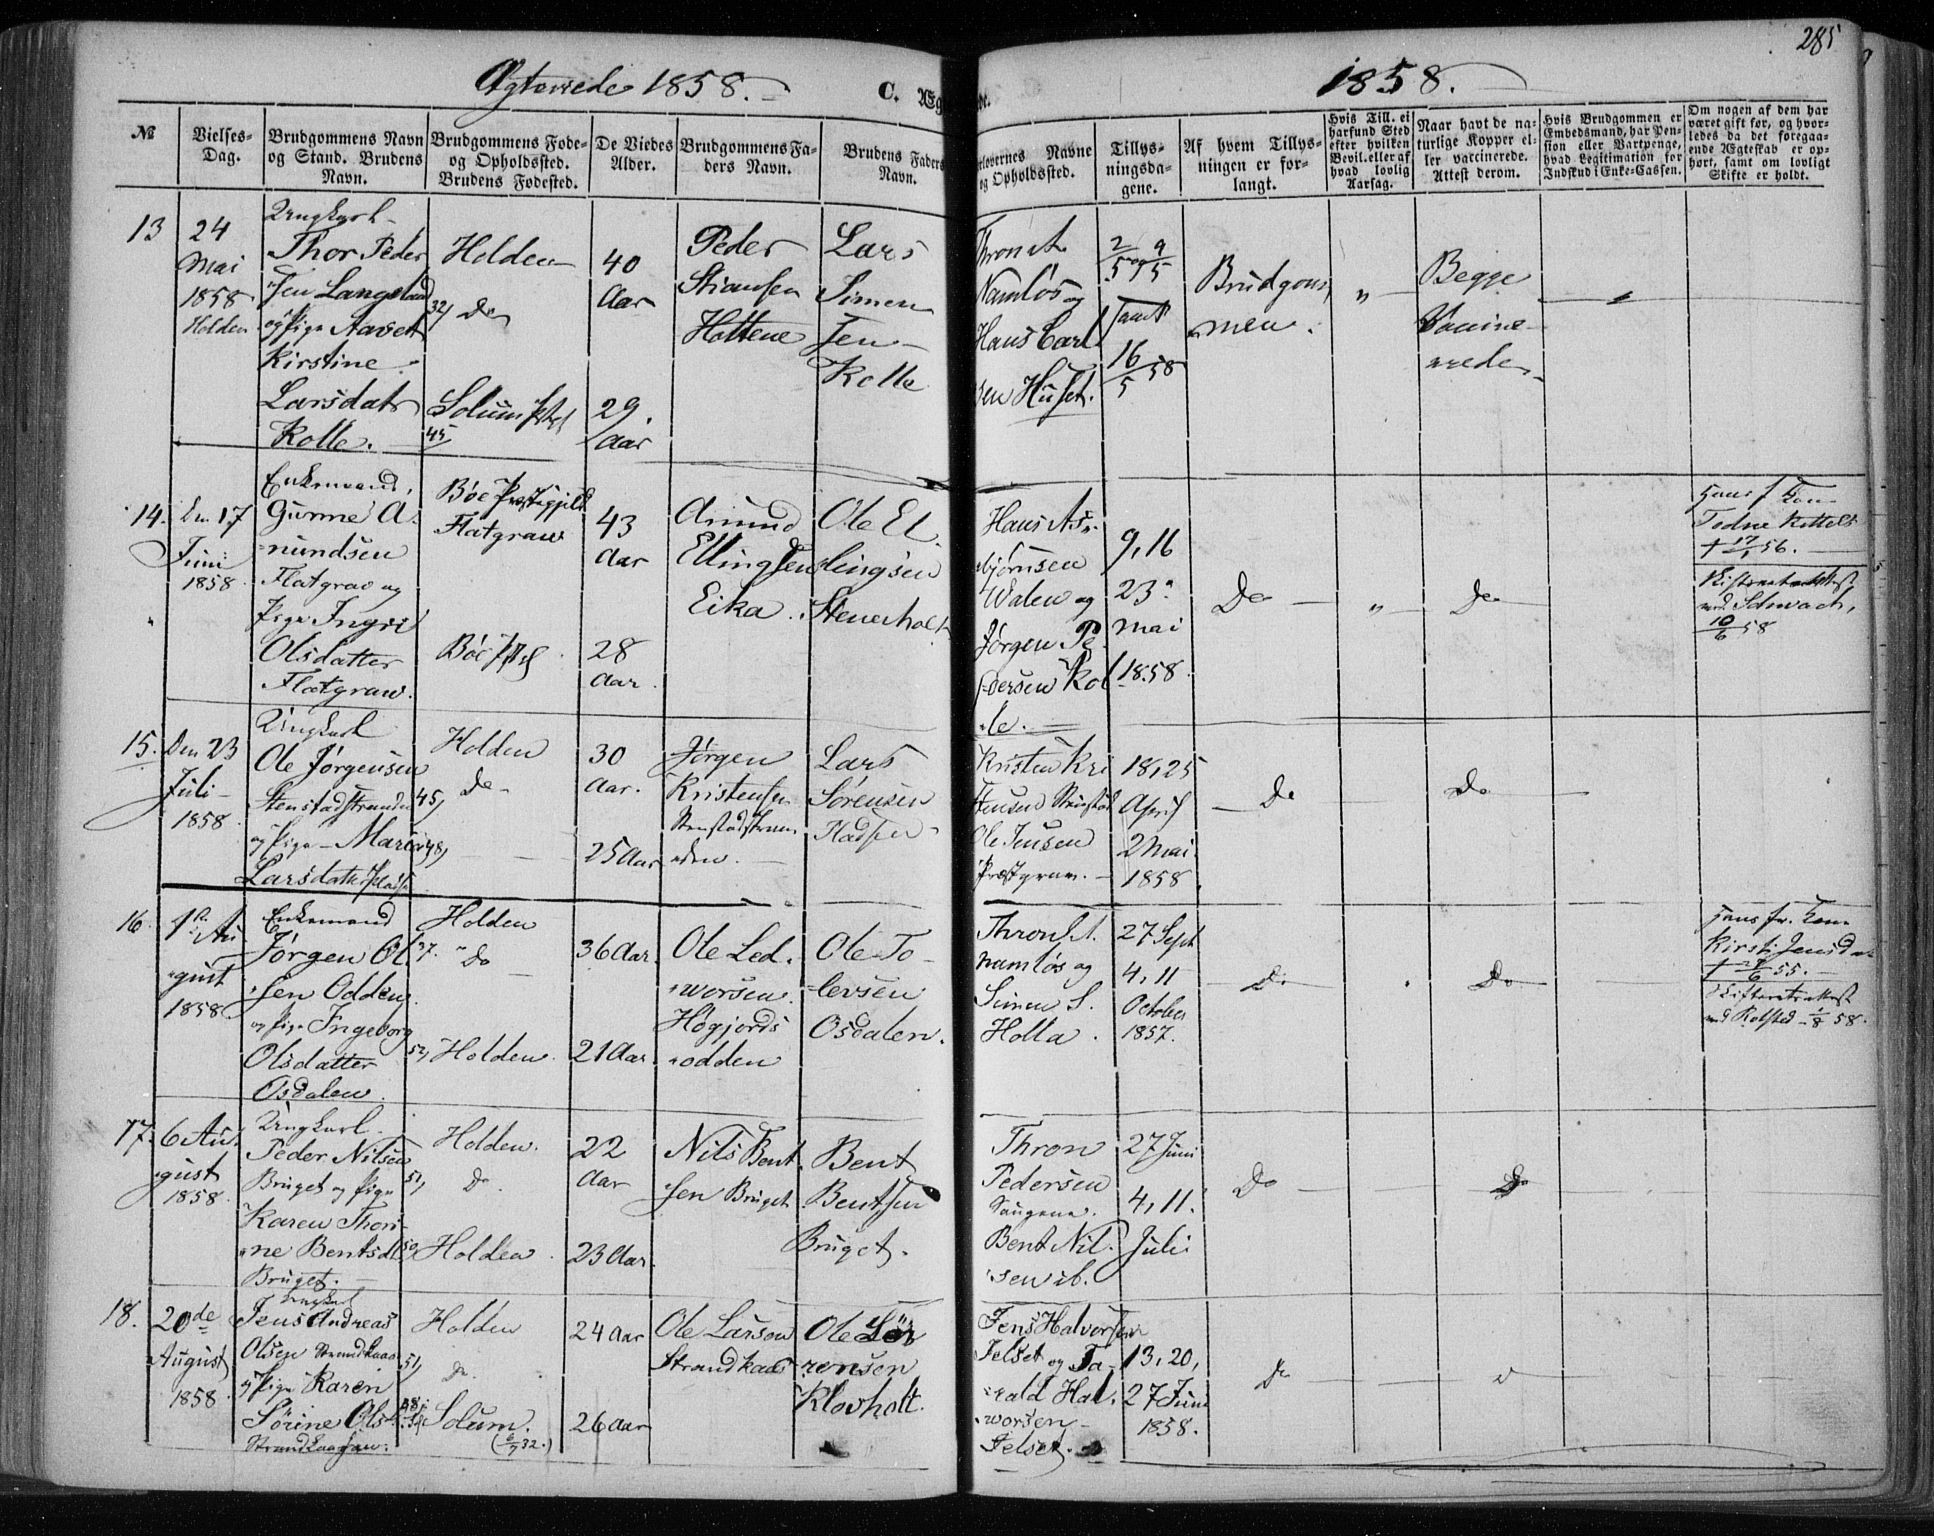 285
Ægteviede 1858.
C. Æg
de.
1858.
No
Vielses-
Dag.
Brudgommens Navn
og Stand. Brudens
Navn.
Brudgommens Føde-
og Opholdssted.
Brudens Fødested.
De Viedes
Alder.
Brudgommens Fa-
ders Navn.
Brudens Faders
Navn.
orlovernes Navne
og Opholdssted.
Tillys-
ningsda-
gene.
Af hvem Tillys-
ningen er for-
langt.
Hvis Till. ei
har fund Sted
efter hvilken
Bevil. eller af
hvad lovlig
Aarsag.
Naar havt de na-
turlige Kopper el-
ler vaccinerede.
Attest derom.
Hvis Brudgommen er
Embedsmand, har Pen-
sion eller Vartpenge,
hvad Legitimation for
Indskud i Enke-Cassen.
Om nogen af dem har
været gift før, og hvor-
ledes da det foregaa-
ende Ægteskab er op-
hørt, samt om lovligt
Skifte er holdt.
13
24
Mai
1858
Holden
Ungkarl
Thor Peder
sen Langeland
og Pige Aaset
Kirstine
Larsdatr
Kolle.
Holden
32, Do
Solum Pstgl
45
40
Aar
29
Aar
Peder
Stiansen
Holtene
Lars
Simen
sen
Kolle
Thron A
Namløs og
Hans Carl
sen Huset.
2/5 og 9/5
samt
16/5 58
Brudgom
men.
"
Begge
Vaccine
rede
14.
Den 17
Juni
1858
Enkemand,
Gunne A
mundsen
Flatgrav og
Pige Ingri
Olsdatter
Flatgrav.
Bøe Præstegjeld
Flatgrav
Bøe Pstgl
43
Aar
28
Aar.
Amund
Ellingsen
Eika.
Ole El
lingsen
Stenerholt
Hans As
bjørnsen
Walen og
Jørgen Pe
dersen Kol
le.
9, 16
23
Mai
1858.
Do
"
Do
Hans f. Kon
Todne Kittels
† 17/1 56.
Skifteattest
med Schwach,
10/6 58
15.
Den 23
Juli
1858
Ungkarl
Ole Jørgensen
Stenstadstranden
og Pige Maria
Larsdatter Pladsen
Holden
45, Do
48,
30
Aar.
25 Aar
Jørgen
Kristensen
Stenstadstran
den.
Lars
Sørensen
Pladsen
Kristen Kri
stensen Stenstad
Ole Jensen
Præstgrav.
18, 25
April
2 Mai
1858
Do
Do
16
1ste Au
gust
1858
Enkemand
Jørgen Ol
sen Odden
og Pige Ingeborg
Olsdatter
Osdalen.
Holden
37. Do
52, Holden.
36 Aar.
21 Aar.
Ole Led.
worsen
Høgjords
odden
Ole To
levsen
Osdalen.
Thron A.
Namløs og
Simen S.
Holla.
27 Sept
4, 11
October
1857.
Do
Do
Hans fr. Kone
Kirsti Jensdatr
6 55.
Skifteattest
med Rolsted 1/8 58.
17.
6 Au
gust
1858.
Ungkarl.
Peder Nilsen
Bruget og Pige
Karen Thori
ne Bentsdtr
Bruget.
Holden.
51, Do.
50, Holden.
22
Aar
23 Aar.
Nils Bent
sen Bruget
Bent
Bentsen
Bruget.
Thron
Pedersen
Saugene.
Bent Nil
sen ib.
27 Juni
4, 11.
Juli
Do
Do
18.
20de
August
1858
Ungkarl
Jens Andreas
Olsen Strandkaas
og Pige Karen
Sørine Ols
Strandkaasen.
Holden
51, Do.
Solum.
(6/7 32.)
24 Aar
26 Aar
Ole Larsen
Strandkaas
Ole Sø
rensen
Klovholt.
Jens Halvorsen
Jelset og Ta
rald Hal
worsen
Jelset.
13, 20,
27 Juni
1858.
Do